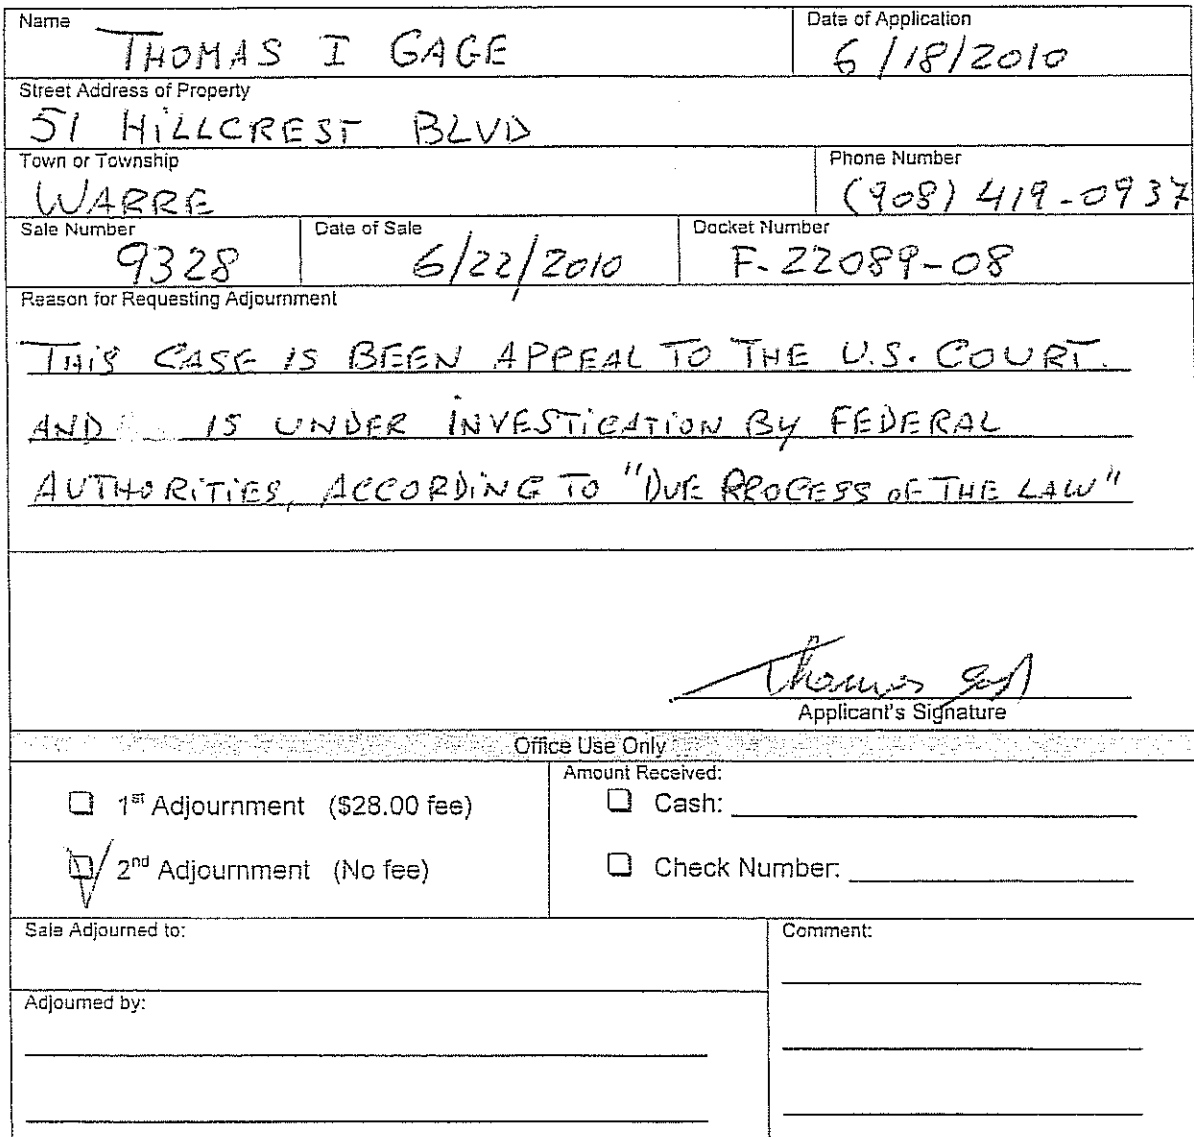 Name
THOMAS I GAGE
Date of Application
6/18/2010
Street Address of Property
51 HILLCREST BLVD
Town or Township
WARRE
Phone Number
(908) 419-0937
Sale Number
9328
Date of Sale
6/22/2010
Docket Number
F-22089-08
Reason for Requesting Adjournment
THIS CASE IS BEEN APPEAL TO THE U.S. COURT.
AND IS UNDER INVESTIGATION BY FEDERAL
AUTHORITIES, ACCORDING TO "DUE PROCESS OF THE LAW"
Thomas Gage
Applicant's Signature
Office Use Only
☐ 1st Adjournment ($28.00 fee)
☑ 2nd Adjournment (No fee)
Amount Received:
☐ Cash:
☐ Check Number:
Sale Adjourned to:
Comment:
Adjourned by: